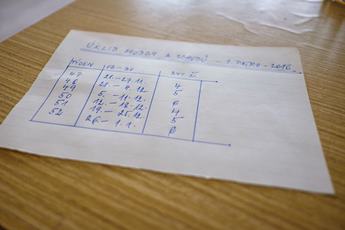 ÚKLID CHODBA A VCHOD - 1. PATRO - 2016
TÝDEN
47 21.-27.11. 4
48 28.-4.12. 5
49 5.-11.12. 6
50 12.-18.12. 4
51 19.-25.12. 5
52 26.-1.1. 6